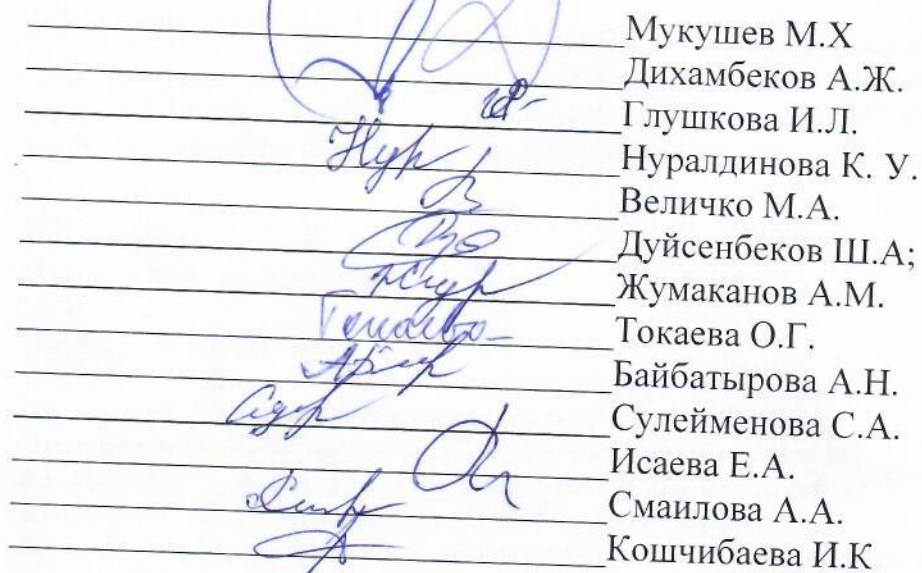 Мукушев М.Х
Дихамбеков А.Ж.
Глушкова И.Л.
Нуралдинова К. У.
Величко М.А.
Дуйсенбеков Ш.А;
Жумаканов А.М.
Токаева О.Г.
Байбатырова А.Н.
Сулейменова С.А.
Исаева Е.А.
Смаилова А.А.
Кошчибаева И.К